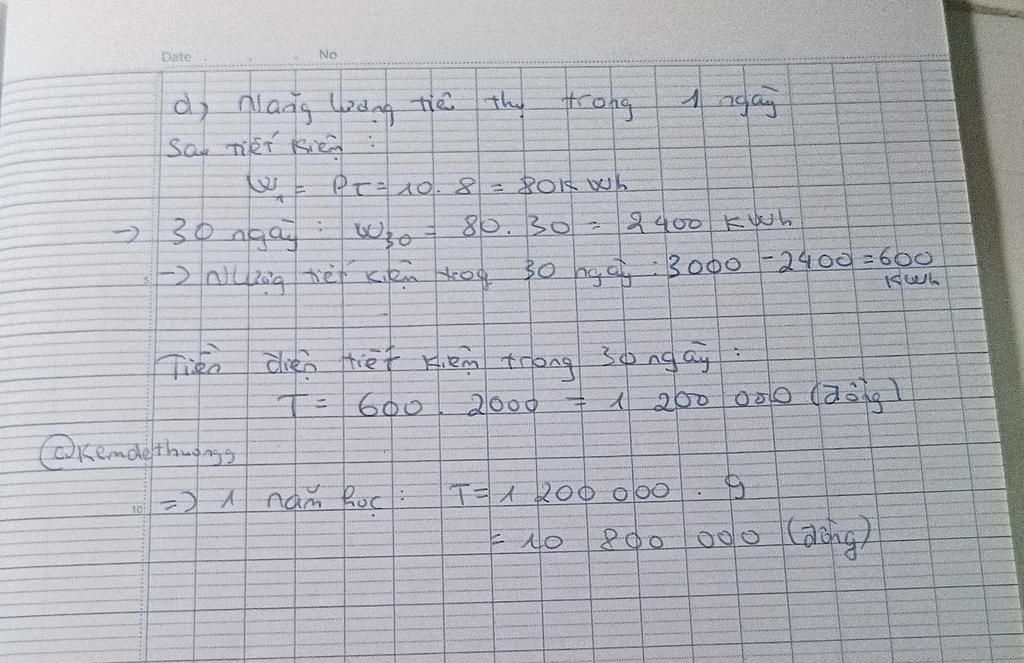 Date No
d, Nlăng lượng tiêu thụ trong 1 ngày
Sau tiết kiệm :
W₁ = Pt = 10 . 8 = 80 kWh
→ 30 ngày : W₃₀ = 80 . 30 = 2400 kWh
→ Nlượng tiết kiệm trog 30 ngày : 3000 - 2400 = 600 kWh
Tiền điện tiết kiệm trong 30 ngày :
T = 600 . 2000 = 1 200 000 (đồng)
@kemdethuongg
=> 1 năm học : T = 1 200 000 . 9
10
= 10 800 000 (đồng)